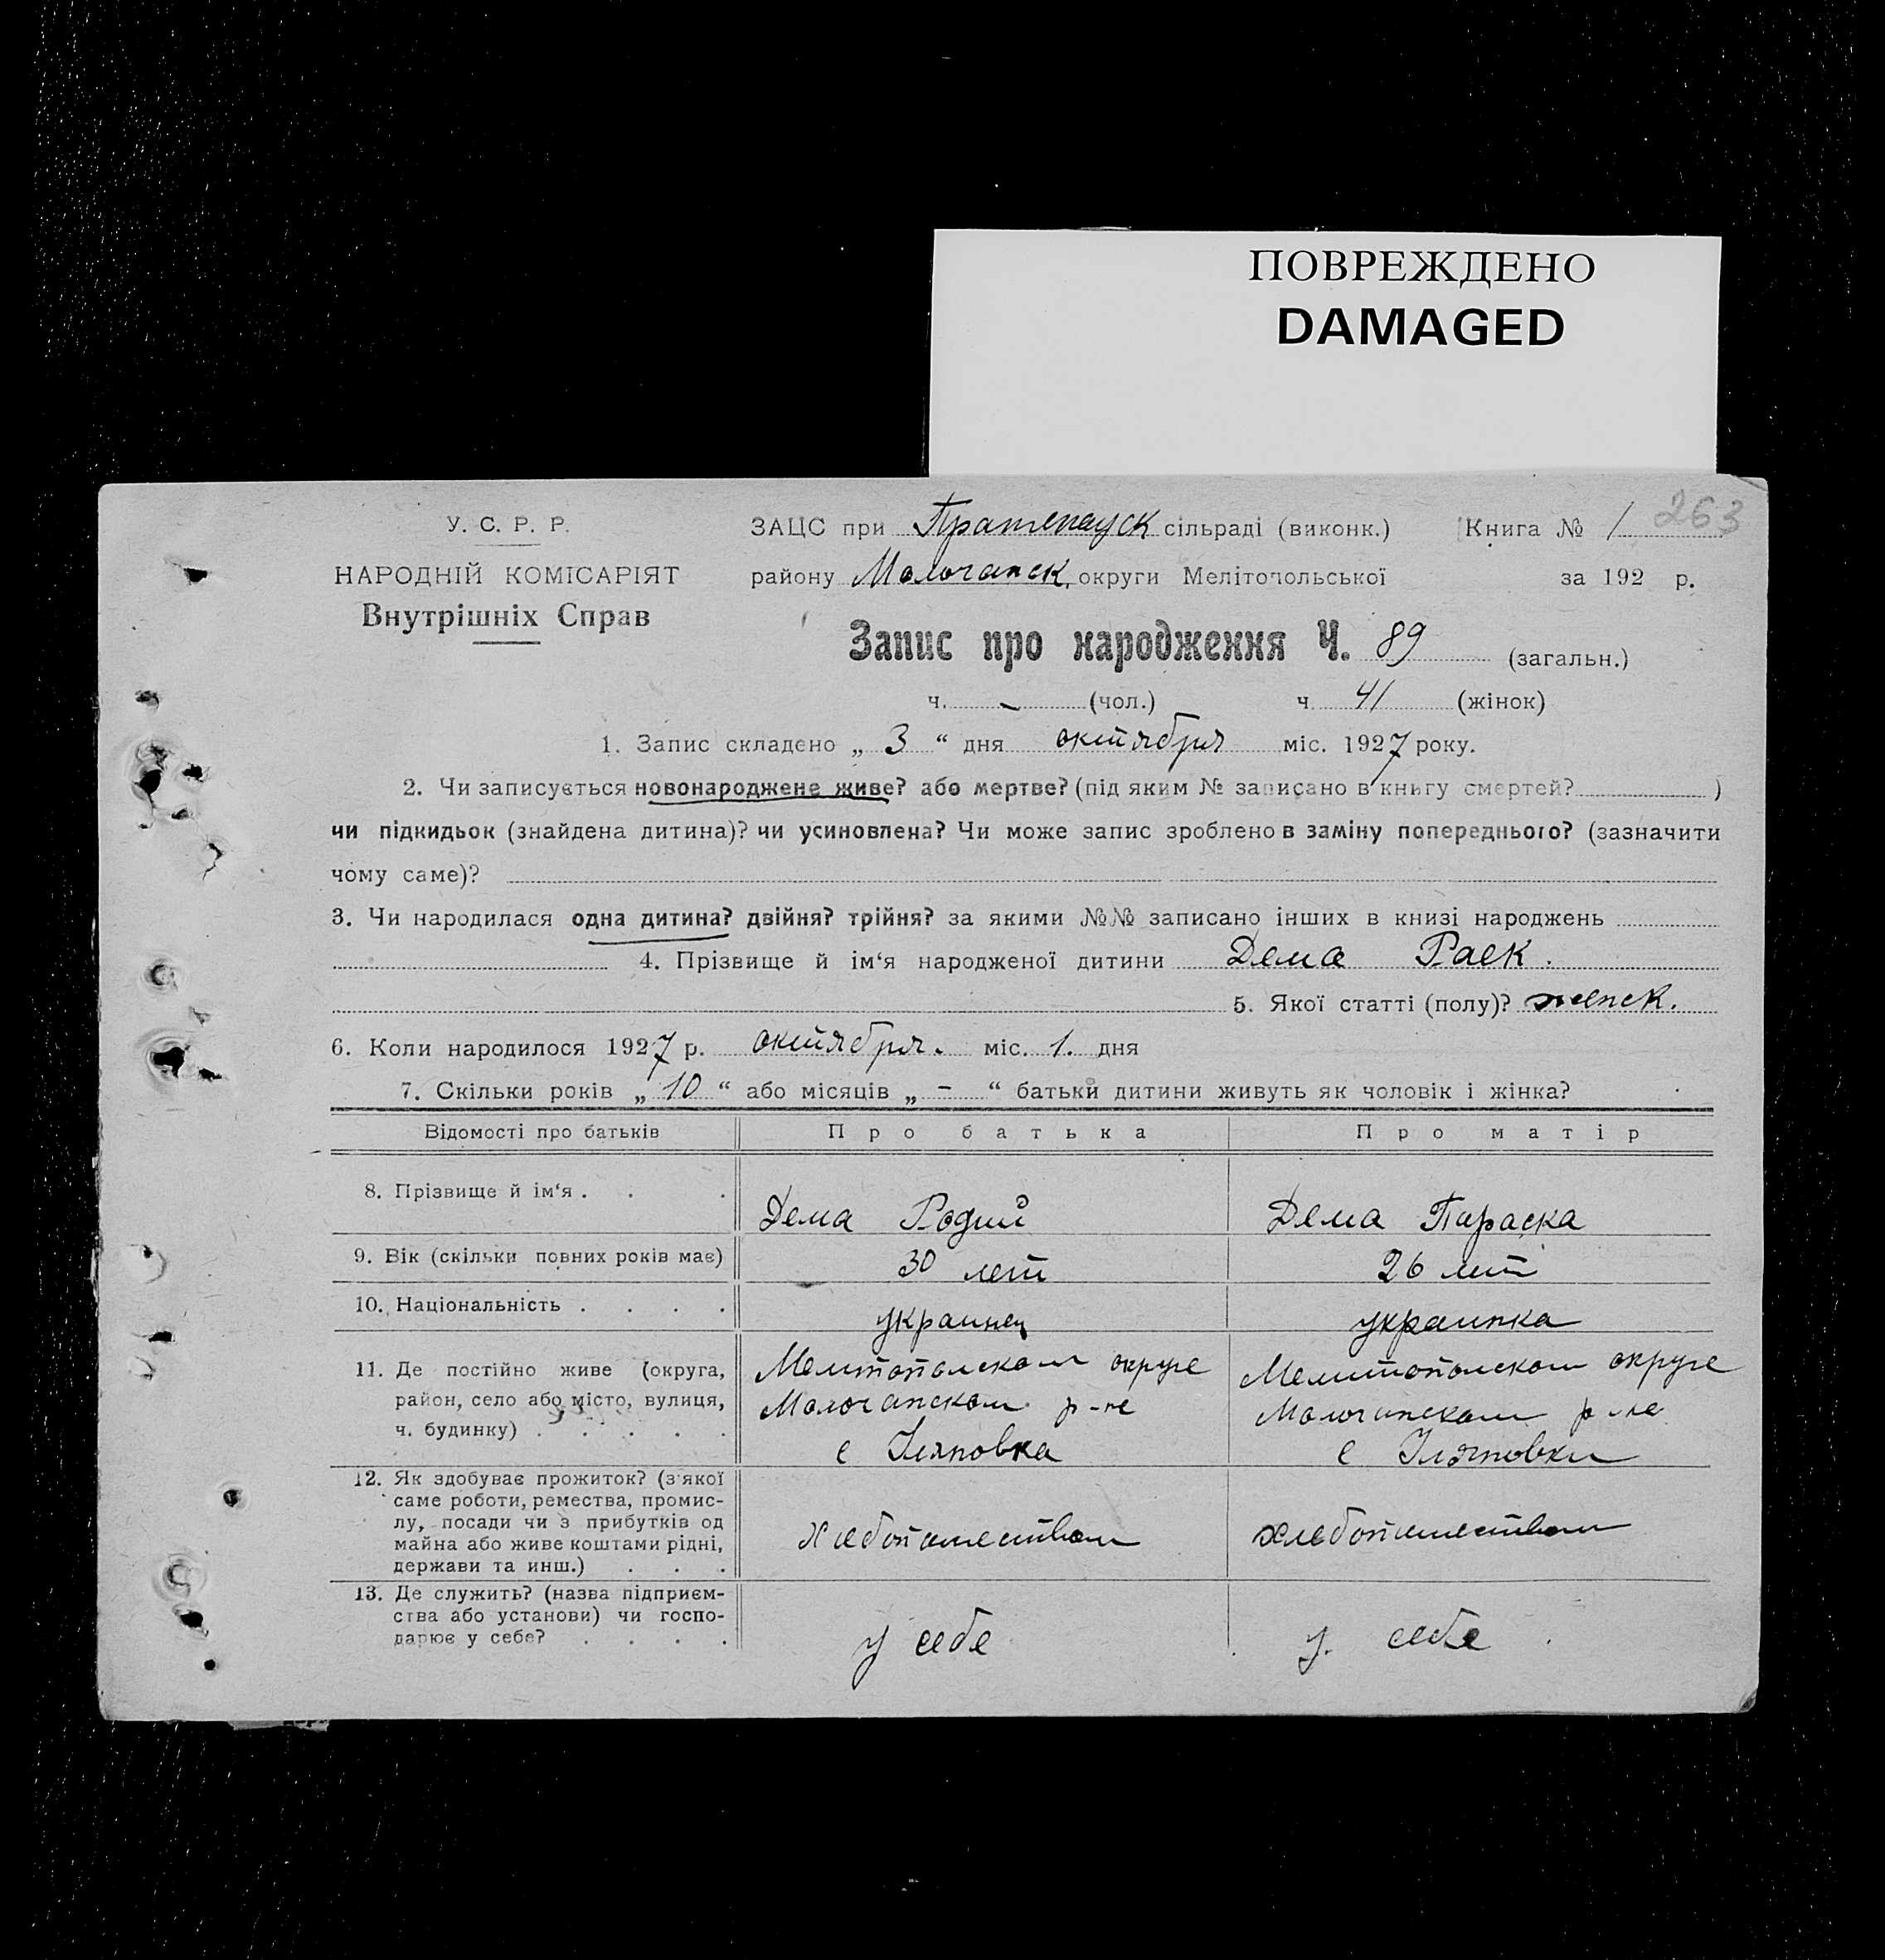 ПОВРЕЖДЕНО
DAMAGED
263
У. С. Р. Р.
НАРОДНІЙ КОМІСАРІЯТ
Внутрішніх Справ
ЗАЦС при сільраді (виконк.) Книга № 1
району Молочанск. округи Мелітопольської за 192 р.
Запис про народження Ч. 89 (загальн.)
ч. - (чол.) ч. 41 (жінок)
1. Запис складено „ 3 “ дня октября міс. 1927 року.
2. Чи записується новонароджене живе? або мертве? (під яким № записано в книгу смертей? )
чи підкидьок (знайдена дитина)? чи усиновлена? Чи може запис зроблено в заміну попереднього? (зазначити
чому саме)?
3. Чи народилася одна дитина? двійня? трійня? за якими №№ записано інших в книзі народжень
4. Прізвище й ім‘я народженої дитини Дема Раек.
5. Якої статті (полу)? женск.
6. Коли народилося 1927 р. октября. міс. 1. дня
7. Скільки років „ 10 “ або місяців „ - “ батьки дитини живуть як чоловік і жінка?
Відомості про батьків Про батька Про матір
8. Прізвище й ім‘я . . . Дема Родий Дема Параска
9. Вік (скільки повних років має) 30 лет 26 лет
10. Національність . . . . украинец украинка
11. Де постійно живе (округа,
район, село або місто, вулиця,
ч. будинку) . . . . .
Мелитопольском округе
Молочанском р-не
с
Мелитопольском округе
Молочанском р-не
с
12. Як здобуває прожиток? (з якої
саме роботи, ремества, промис-
лу, посади чи з прибутків од
майна або живе коштами рідні,
держави та инш.) . . .
хлебопашеством хлебопашеством
13. Де служить? (назва підприєм-
ства або установи) чи госпо-
дарює у себе? . . . .
у себе у себе